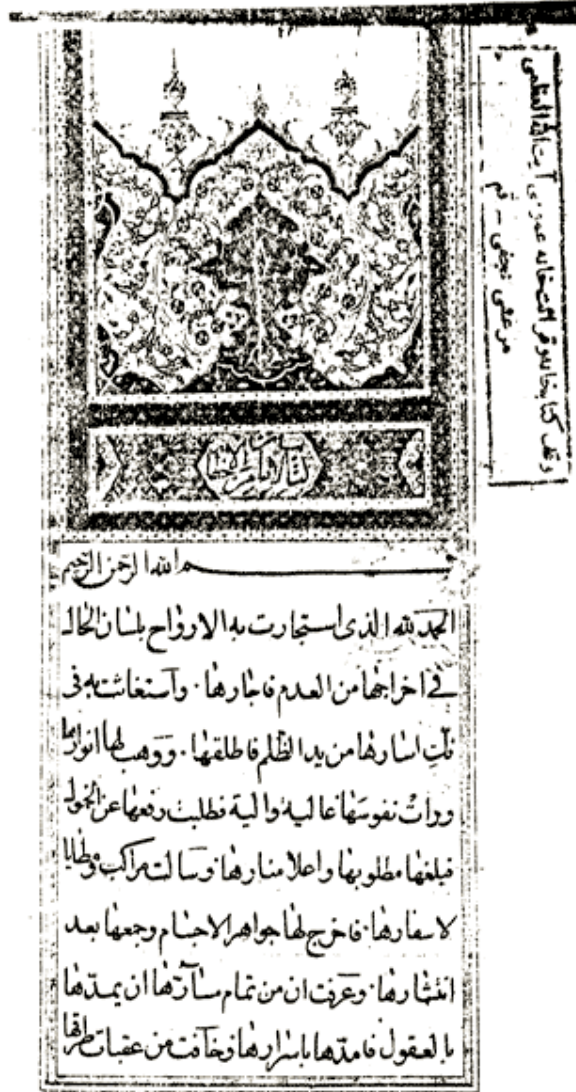 وقف كتابخانه و قرائت خانه عمومى آيت الله العظمى
مرعشى نجفى - قم
بسم الله الرحمن الرحيم
الحمد لله الذى استجارت به الارواح بلسان الحال
فى اخراجها من العدم فاجارها. وآستغاثت به فى
فكّ اسارها من يد الظلم فاطلقها. ووهب لها انوارها
ورات نفوسها عالية والية فطلبت رفعها عن الخمول
فبلغها مطلوبها واعلا منارها وسالت مراكب ومطايا
لاسفارها. فاخرج لها جواهر الاجسام وجمعها بعد
انتثارها. وعرفت ان من تمام مسآرّها ان يمدّها
بالعقول فامدّها باسرارها وخافت من عقبات طرقها